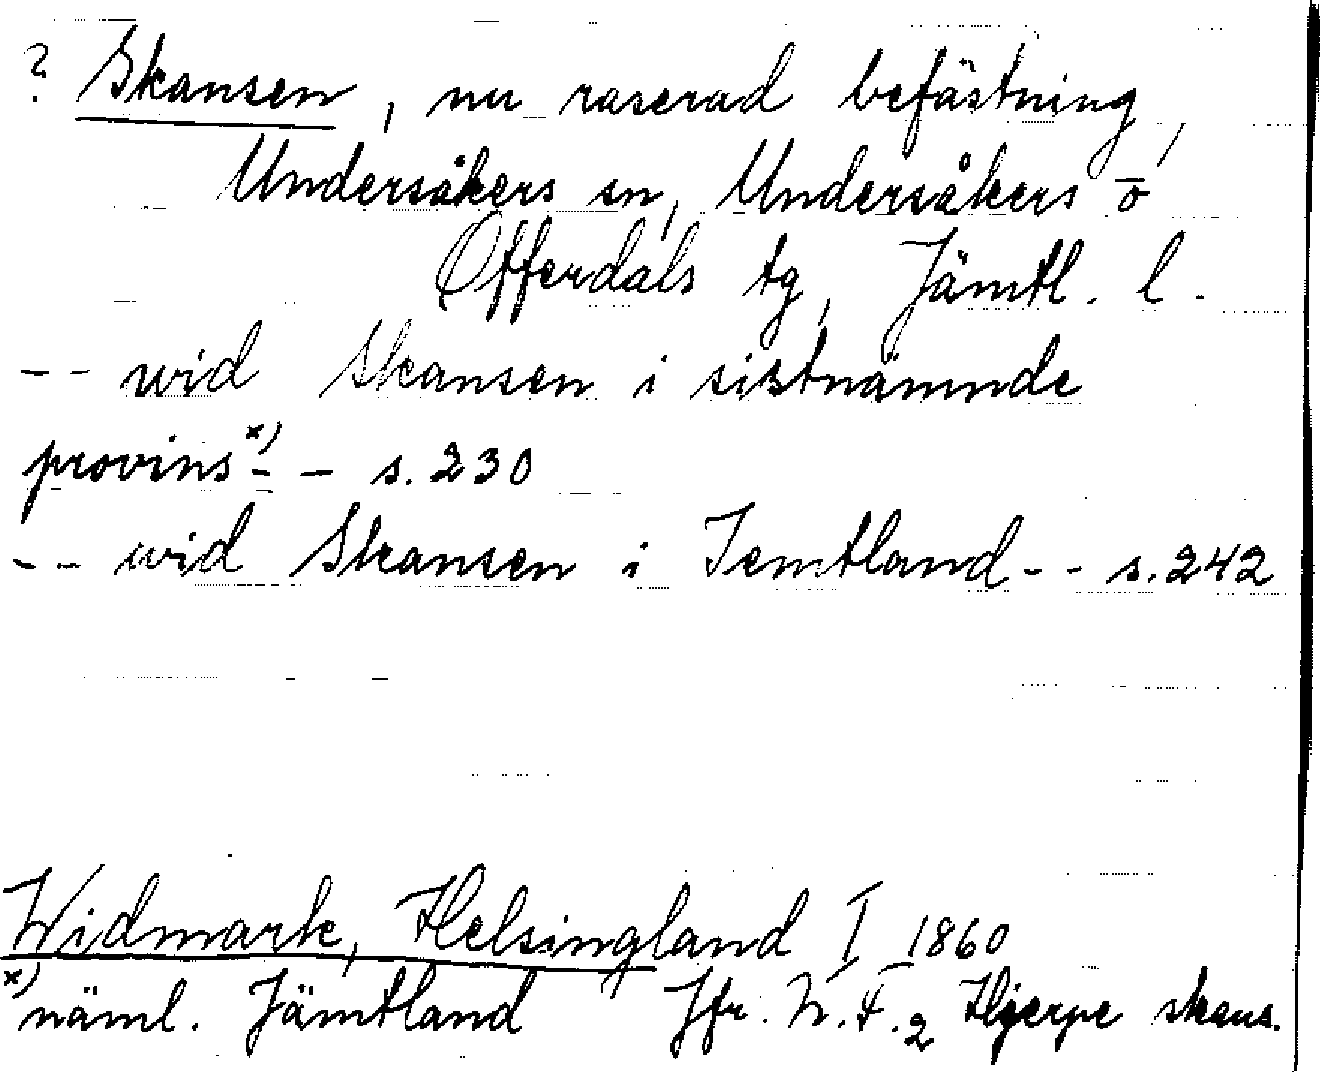 ? Skansen, nu raserad befästning,
Undersåkers sn, Undersåkers o
Offerdals tg, Jämtl. l.
-- wid Skansen i sistnämnde
provins x) - - s. 230
-- wid Skansen i Jemtland -- s. 242
Widmark, Helsingland I 1860
x) näml. Jämtland Jfr. N.F.2 Hjerpe skans.